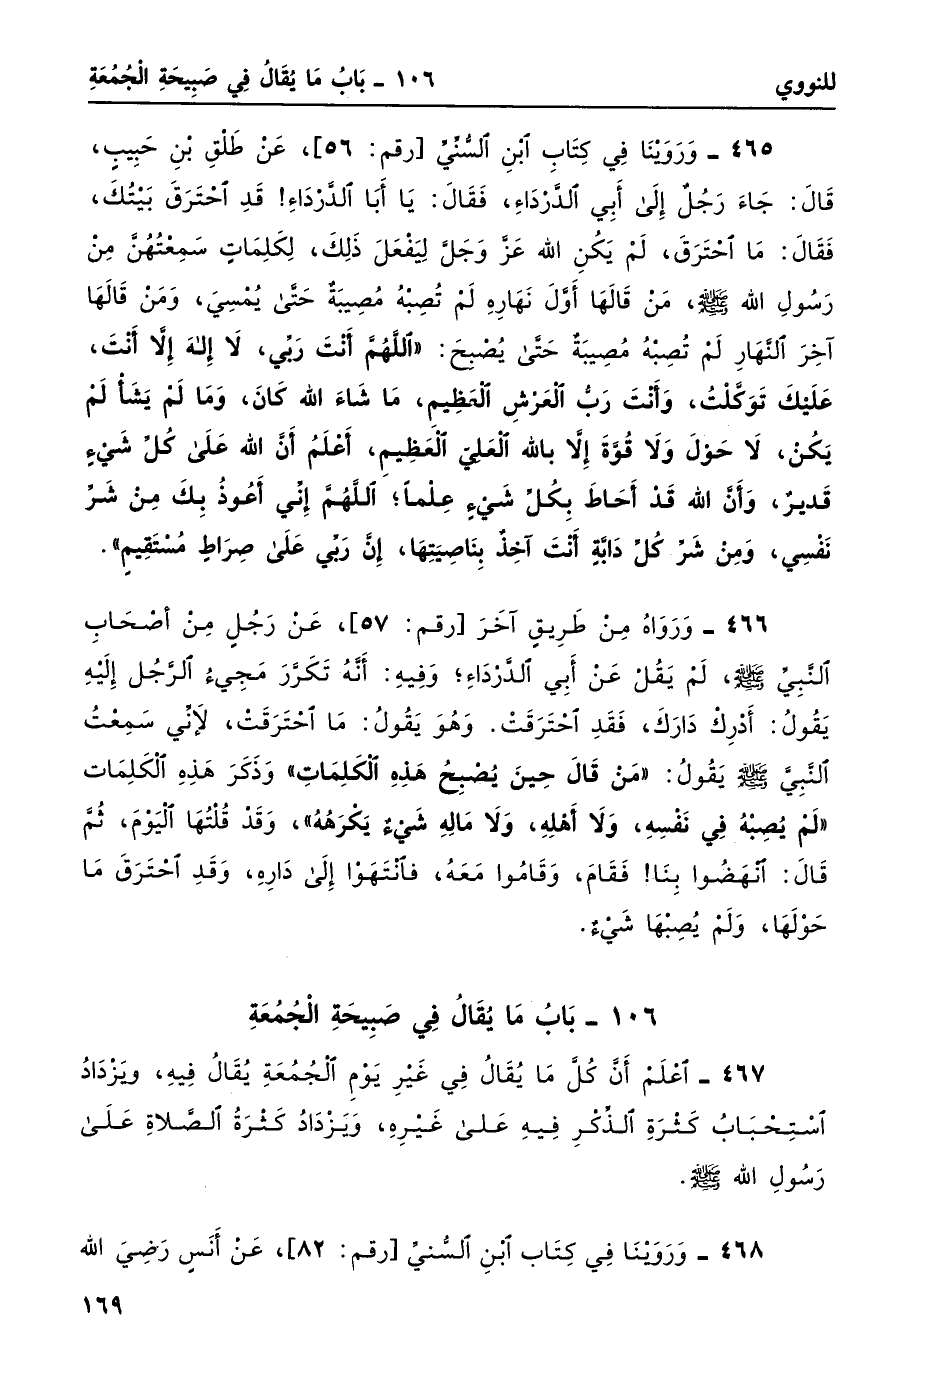 للنووي ١٠٦ - بَابُ مَا يُقَالُ فِي صَبِيحَةِ الْجُمُعَةِ
٤٦٥ - وَرَوَيْنَا فِي كِتَابِ ٱبْنِ ٱلسُّنِّيِّ [رقم: ٥٦]، عَنْ طَلْقِ بْنِ حَبِيبٍ،
قَالَ: جَاءَ رَجُلٌ إِلَىٰ أَبِي ٱلدَّرْدَاءِ، فَقَالَ: يَا أَبَا ٱلدَّرْدَاءِ! قَدِ ٱحْتَرَقَ بَيْتُكَ،
فَقَالَ: مَا ٱحْتَرَقَ، لَمْ يَكُنِ الله عَزَّ وَجَلَّ لِيَفْعَلَ ذَلِكَ، لِكَلِمَاتٍ سَمِعْتُهُنَّ مِنْ
رَسُولِ الله ﷺ، مَنْ قَالَهَا أَوَّلَ نَهَارِهِ لَمْ تُصِبْهُ مُصِيبَةٌ حَتَّىٰ يُمْسِيَ، وَمَنْ قَالَهَا
آخِرَ ٱلنَّهَارِ لَمْ تُصِبْهُ مُصِيبَةٌ حَتَّىٰ يُصْبِحَ: «ٱللَّهُمَّ أَنْتَ رَبِّي، لَا إِلٰهَ إِلَّا أَنْتَ،
عَلَيْكَ تَوَكَّلْتُ، وَأَنْتَ رَبُّ ٱلْعَرْشِ ٱلْعَظِيمِ، مَا شَاءَ الله كَانَ، وَمَا لَمْ يَشَأْ لَمْ
يَكُنْ، لَا حَوْلَ وَلَا قُوَّةَ إِلَّا بالله ٱلْعَلِيِّ ٱلْعَظِيمِ، أَعْلَمُ أَنَّ الله عَلَىٰ كُلِّ شَيْءٍ
قَدِيرٌ، وَأَنَّ الله قَدْ أَحَاطَ بِكُلِّ شَيْءٍ عِلْماً؛ ٱللَّهُمَّ إِنِّي أَعُوذُ بِكَ مِنْ شَرِّ
نَفْسِي، وَمِنْ شَرِّ كُلِّ دَابَّةٍ أَنْتَ آخِذٌ بِنَاصِيَتِهَا، إِنَّ رَبِّي عَلَىٰ صِرَاطٍ مُسْتَقِيمٍ».
٤٦٦ - وَرَوَاهُ مِنْ طَرِيقٍ آخَرَ [رقم: ٥٧]، عَنْ رَجُلٍ مِنْ أَصْحَابِ
ٱلنَّبِيِّ ﷺ، لَمْ يَقُلْ عَنْ أَبِي ٱلدَّرْدَاءِ؛ وَفِيهِ: أَنَّهُ تَكَرَّرَ مَجِيءُ ٱلرَّجُلِ إِلَيْهِ
يَقُولُ: أَدْرِكْ دَارَكَ، فَقَدِ ٱحْتَرَقَتْ. وَهُوَ يَقُولُ: مَا ٱحْتَرَقَتْ، لَإِنِّي سَمِعْتُ
ٱلنَّبِيَّ ﷺ يَقُولُ: «مَنْ قَالَ حِينَ يُصْبِحُ هَذِهِ ٱلْكَلِمَاتِ» وَذَكَرَ هَذِهِ ٱلْكَلِمَات
«لَمْ يُصِبْهُ فِي نَفْسِهِ، وَلَا أَهْلِهِ، وَلَا مَالِهِ شَيْءٌ يَكْرَهُهُ»، وَقَدْ قُلْتُهَا ٱلْيَوْمَ، ثُمَّ
قَالَ: ٱنْهَضُوا بِنَا! فَقَامَ، وَقَامُوا مَعَهُ، فٱنْتَهَوْا إِلَىٰ دَارِهِ، وَقَدِ ٱحْتَرَقَ مَا
حَوْلَهَا، وَلَمْ يُصِبْهَا شَيْءٌ.
١٠٦ - بَابُ مَا يُقَالُ فِي صَبِيحَةِ الْجُمُعَةِ
٤٦٧ - ٱعْلَمْ أَنَّ كُلَّ مَا يُقَالُ فِي غَيْرِ يَوْمِ ٱلْجُمُعَةِ يُقَالُ فِيهِ، ويَزْدَادُ
ٱسْتِحْبَابُ كَثْرَةِ ٱلذِّكْرِ فِيهِ عَلىٰ غَيْرِهِ، وَيَزْدَادُ كَثْرَةُ ٱلصَّلَاةِ عَلَىٰ
رَسُولِ الله ﷺ.
٤٦٨ - وَرَوَيْنَا فِي كِتَاب ٱبْنِ ٱلسُّنيِّ [رقم: ٨٢]، عَنْ أَنَسٍ رَضِيَ الله
١٦٩